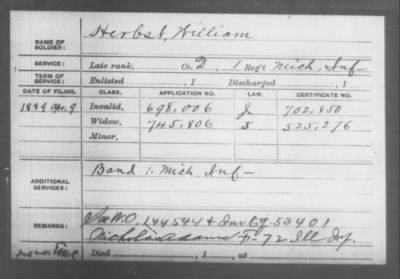 NAME OF SOLDIER: Herbst, William
SERVICE: Late rank, Co. D, 1 Reg't Mich. Inf
TERM OF SERVICE: Enlisted , 1 Discharged , 1
DATE OF FILING. CLASS. APPLICATION NO. LAW. CERTIFICATE NO.
1889 Apr. 9 Invalid, 698,006 J 702,850
Widow, 745,806 J 525,276
Minor,
ADDITIONAL SERVICES: Band 1. Mich. Inf
REMARKS: W.O. 144544 + Inv Ctf 53401
Nicholas Adams F. 72 Ill Inf.
Died , 1 , at